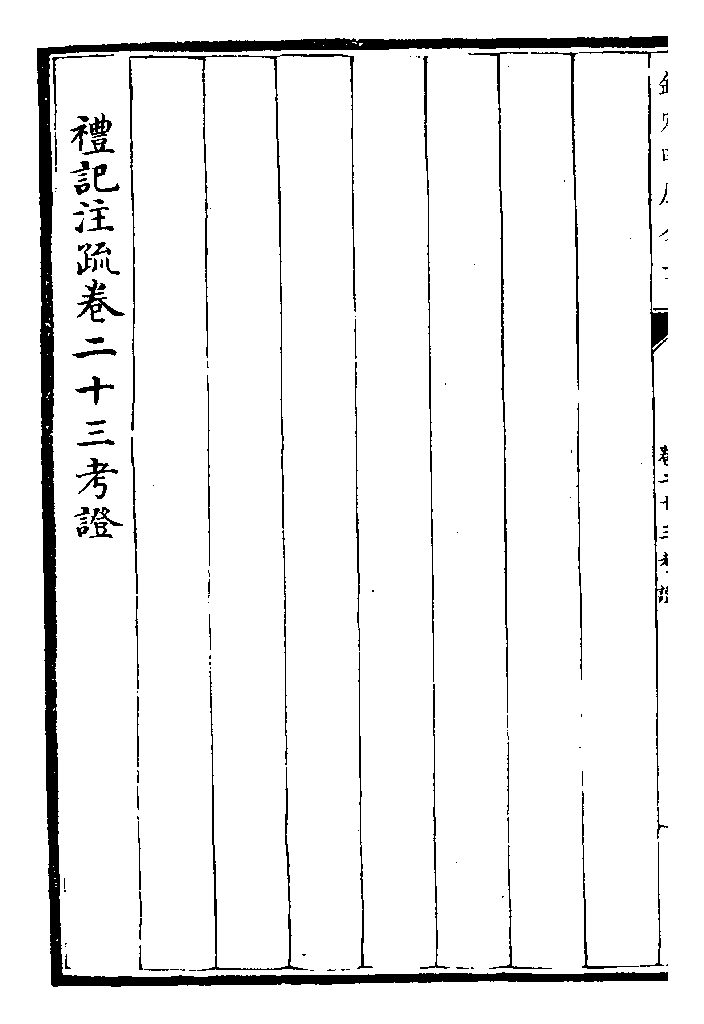 卷二十三考證
禮記注疏卷二十三考證